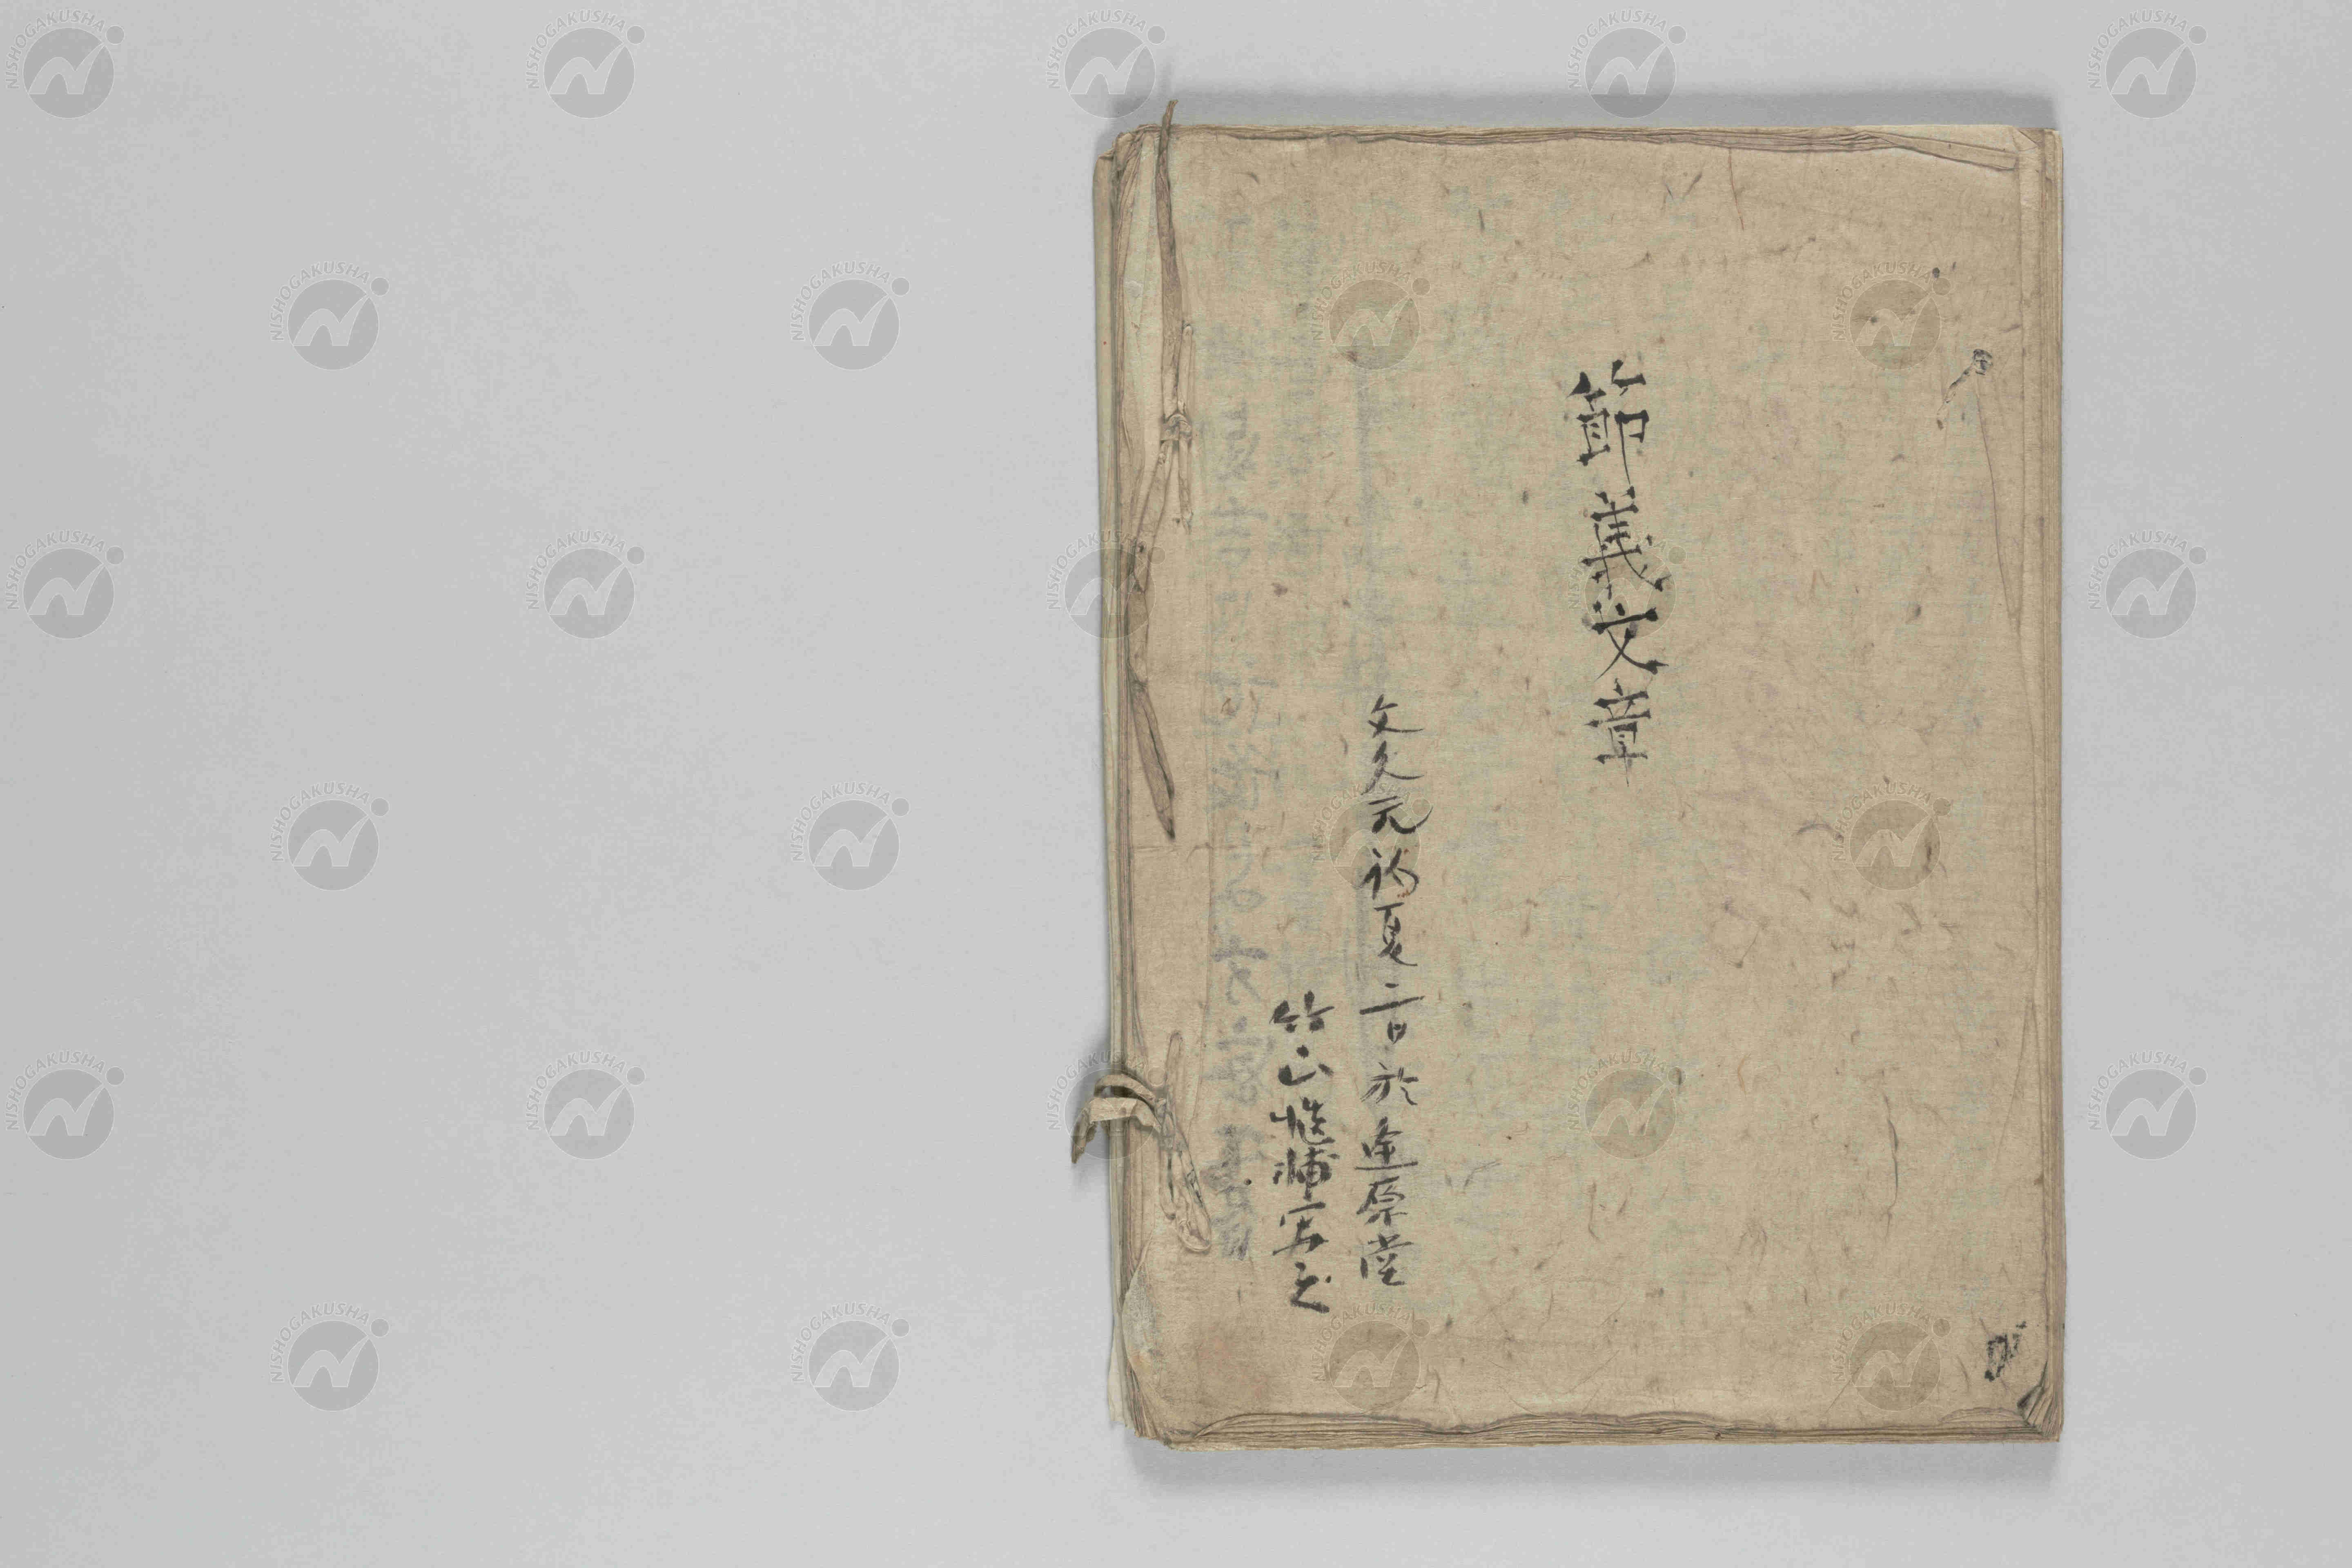 節義文章
文久元初夏二日於逢原堂
竹山惟輔写之
NISHOGAKUSHA